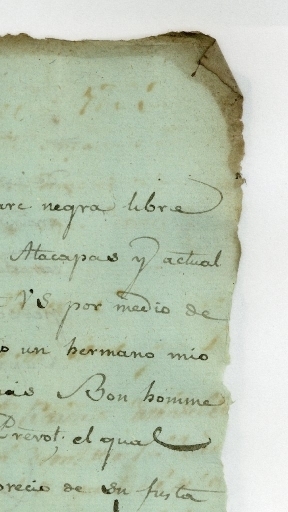 negra libre
Atacapas y actual
VS por medio de
un hermano mio
Bon homme
Prevot; el qual
precio de su justa